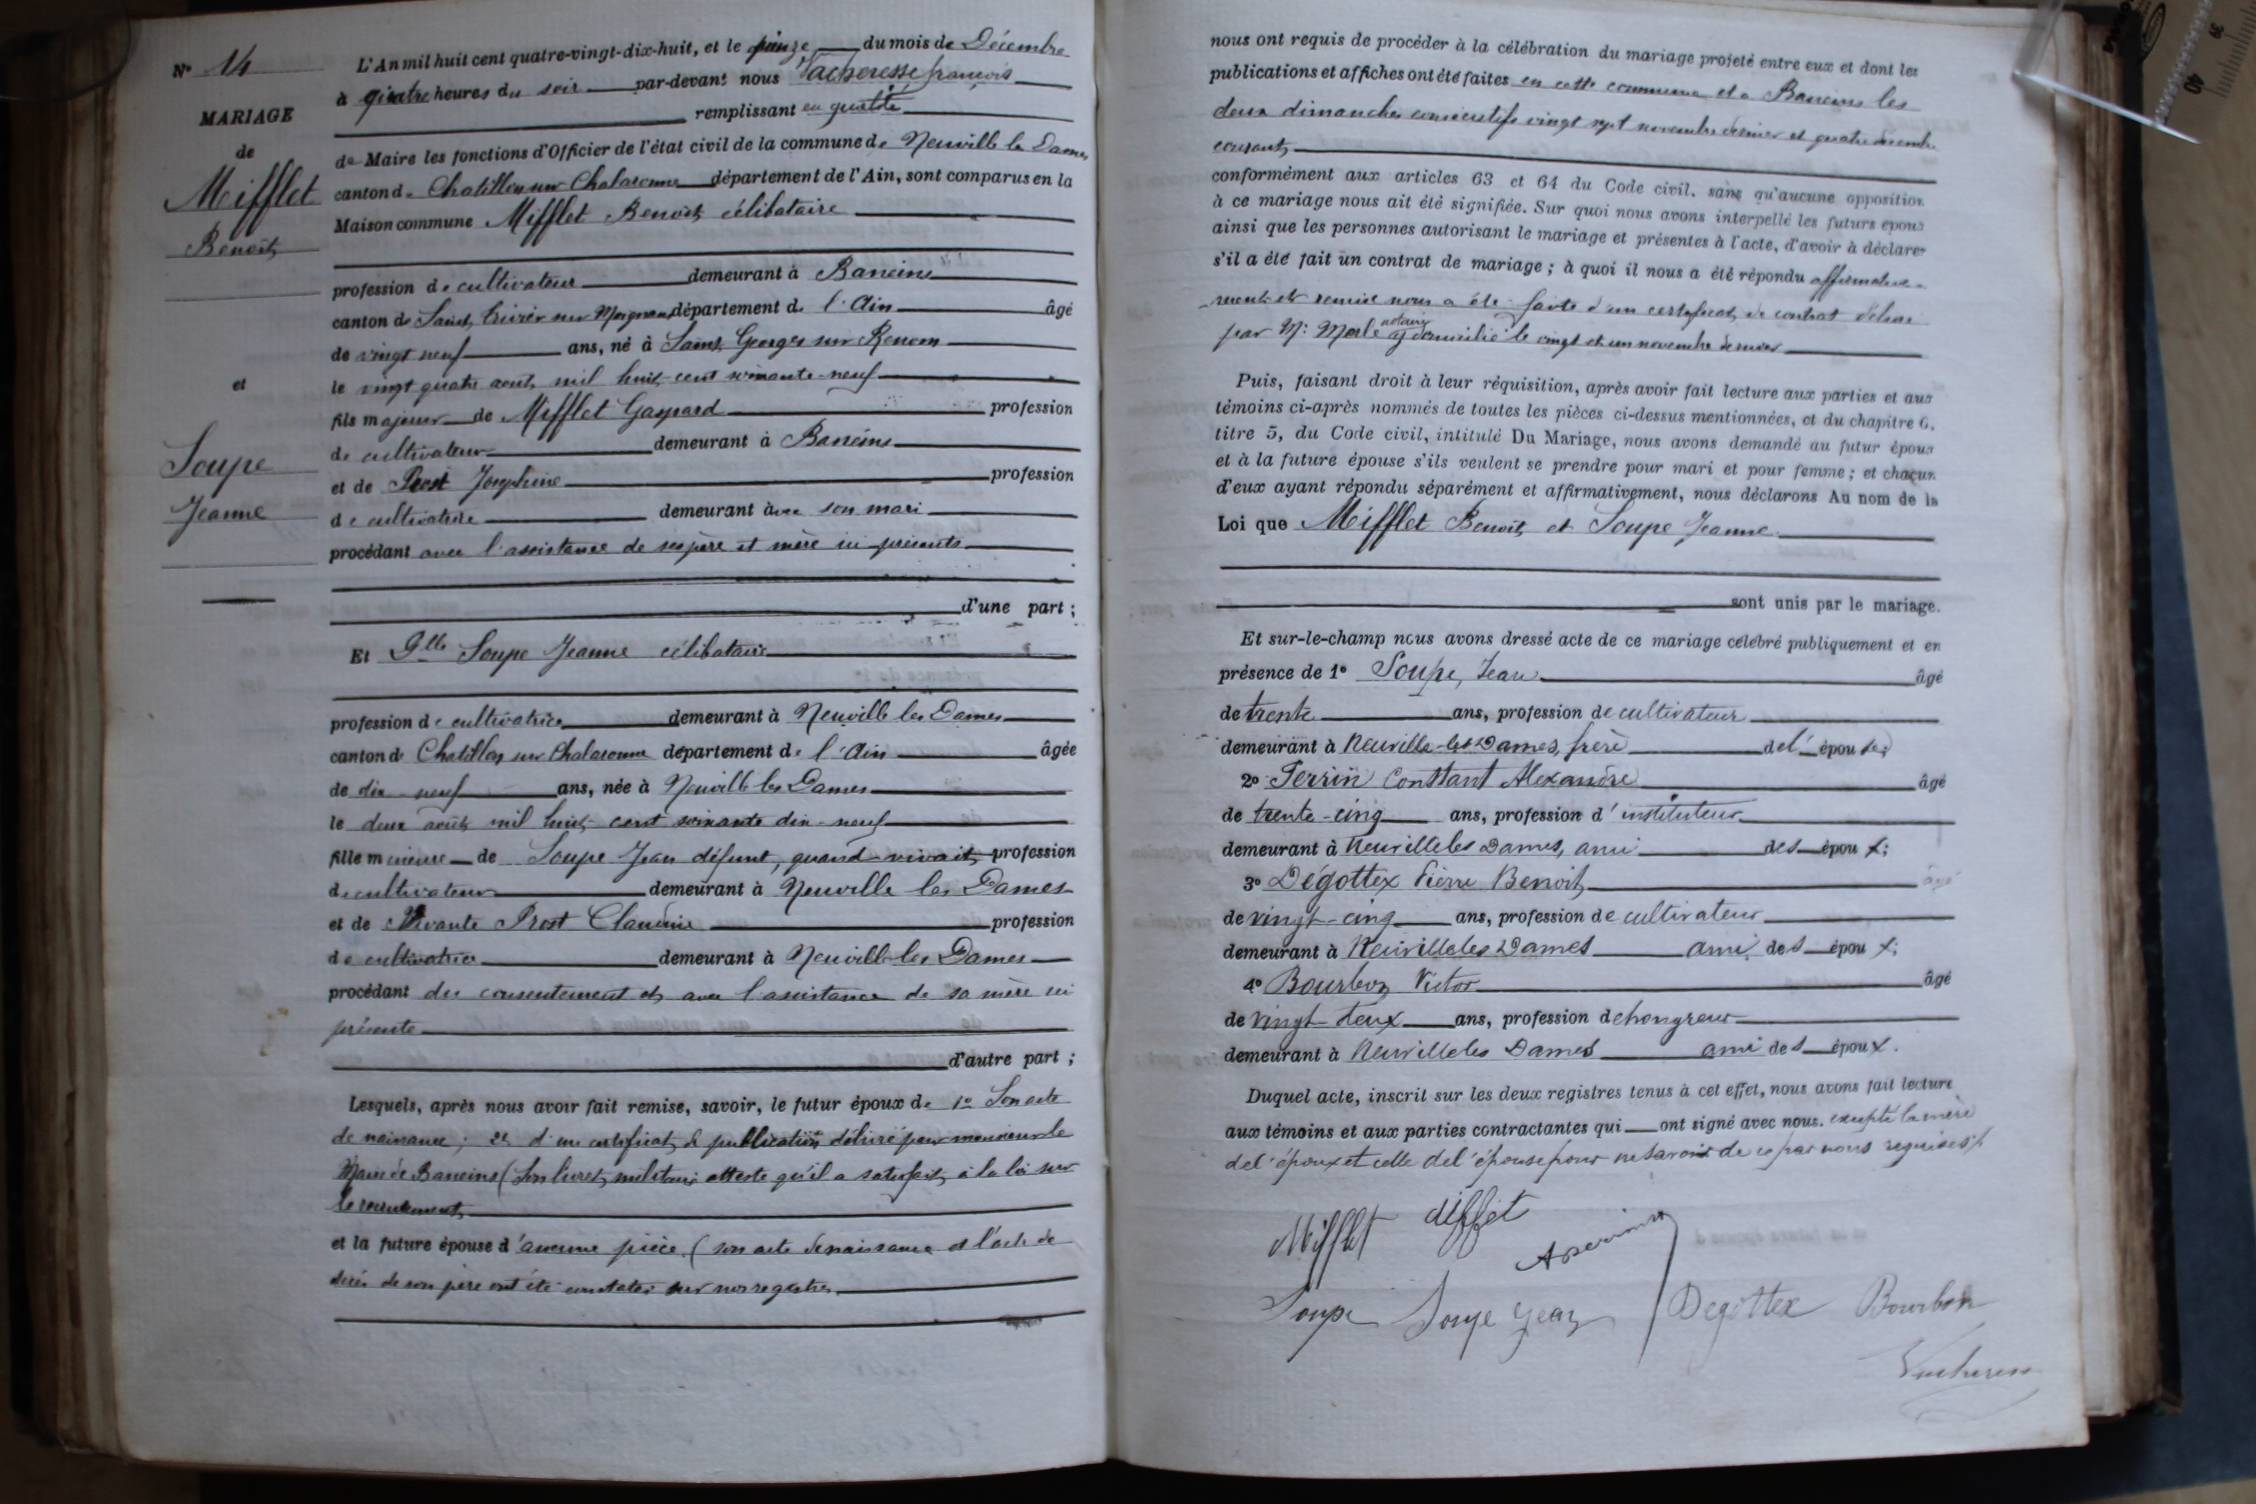 N° 14
MARIAGE
de
Mifflet
Benoît
et
Soupe
Jeanne
L'An mil huit cent quatre-vingt-dix-huit, et le quinze du mois de Décembre
à quatre heures du soir par-devant nous Vacheresse françois
remplissant en qualité
de Maire les fonctions d'Officier de l'état civil de la commune de Neuville les Dames
canton de Chatillon sur Chalaronne département de l'Ain, sont comparus en la
Maison commune Mifflet Benoît célibataire
profession de cultivateur demeurant à Baneins
canton de Saint Trivier sur Moignans département de l'Ain âgé
de vingt neuf ans, né à Saint Georges sur Renom
le vingt quatre aout mil huit cent soixante-neuf
fils majeur de Mifflet Gaspard profession
de cultivateur demeurant à Baneins
et de Prost Joséphine profession
de cultivatrice demeurant à avec son mari
procédant avec l'assistance de ses père et mère ici présents
d'une part ;
Et Dlle Soupe Jeanne célibataire
profession de cultivatrice demeurant à Neuville les Dames
canton de Chatillon sur Chalaronne département de l'Ain âgée
de dix-neuf ans, née à Neuville les Dames
le deux août mil huit cent soixante dix-neuf
fille mineure de Soupe Jean défunt, quand vivait, profession
de cultivateur demeurant à Neuville les Dames
et de vivante Prost Claudine profession
de cultivatrice demeurant à Neuville les Dames
procédant du consentement et avec l'assistance de sa mère ici
présente
d'autre part ;
Lesquels, après nous avoir fait remise, savoir, le futur époux de 1° Son acte
de naissance ; 2° d'un certificat de publication délivré par monsieur le
Maire de Baneins (Son livret militaire atteste qu'il a satisfait à la loi sur
le recrutement
et la future épouse d'aucune pièce (son acte de naissance et l'acte de
décès de son père ont été constatés sur nos registres
nous ont requis de procéder à la célébration du mariage projeté entre eux et dont les
publications et affiches ont été faites en cette commune et à Baneins les
deux dimanches consécutifs vingt sept novembre dernier et quatre décembre
courant
conformément aux articles 63 et 64 du Code civil. sans qu'aucune opposition
à ce mariage nous ait été signifiée. Sur quoi nous avons interpellé les futurs époux
ainsi que les personnes autorisant le mariage et présentes à l'acte, d'avoir à déclarer
s'il a été fait un contrat de mariage ; à quoi il nous a été répondu affirmative-
ment et remise nous a été faite d'un certificat de contrat délivré
par Me Morle notaire y domicilié le vingt et un novembre dernier
Puis, faisant droit à leur réquisition, après avoir fait lecture aux parties et aux
témoins ci-après nommés de toutes les pièces ci-dessus mentionnées, et du chapitre 6,
titre 5, du Code civil, intitulé Du Mariage, nous avons demandé au futur époux
et à la future épouse s'ils veulent se prendre pour mari et pour femme ; et chacun
d'eux ayant répondu séparément et affirmativement, nous déclarons Au nom de la
Loi que Mifflet Benoît et Soupe Jeanne
sont unis par le mariage.
Et sur-le-champ nous avons dressé acte de ce mariage célébré publiquement et en
présence de 1° Soupe, Jean âgé
de trente ans, profession de cultivateur
demeurant à Neuville-les-Dames, frère de l'épouse;
2° Perrin Constant Alexandre âgé
de trente-cinq ans, profession d'instituteur
demeurant à Neuville les Dames, ami des époux;
3° Dégottex Pierre Benoit âgé
de vingt-cinq ans, profession de cultivateur
demeurant à Neuville les Dames ami des époux;
4° Bourbon Victor âgé
de vingt-deux ans, profession de hongreur
demeurant à Neuville les Dames ami des époux.
Duquel acte, inscrit sur les deux registres tenus à cet effet, nous avons fait lecture
aux témoins et aux parties contractantes qui ont signé avec nous. excepté la mère
de l'époux et celle de l'épouse pour ne savoir de ce par nous requises
Mifflet Miffet
A Perrin
Soupe Soupe Jean Degottex Bourbon
Vacheresse